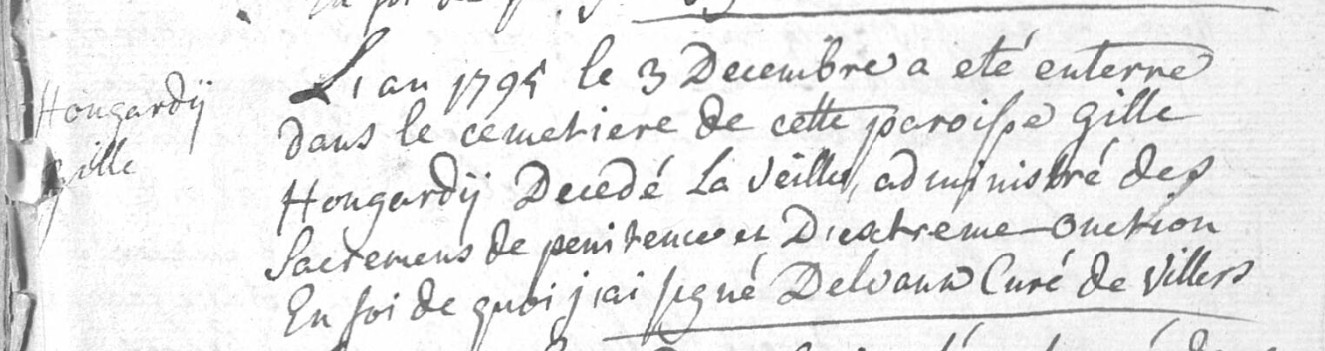 Hongardÿ
gille
L'an 1795 le 3 Decembre a eté enterre
dans le cemetiere de cette paroisse gille
Hongardÿ Decedé la veille, administré des
sacremens de penitence et D'extreme-onction
En foi de quoi j'ai signé Delvaux Curé de villers